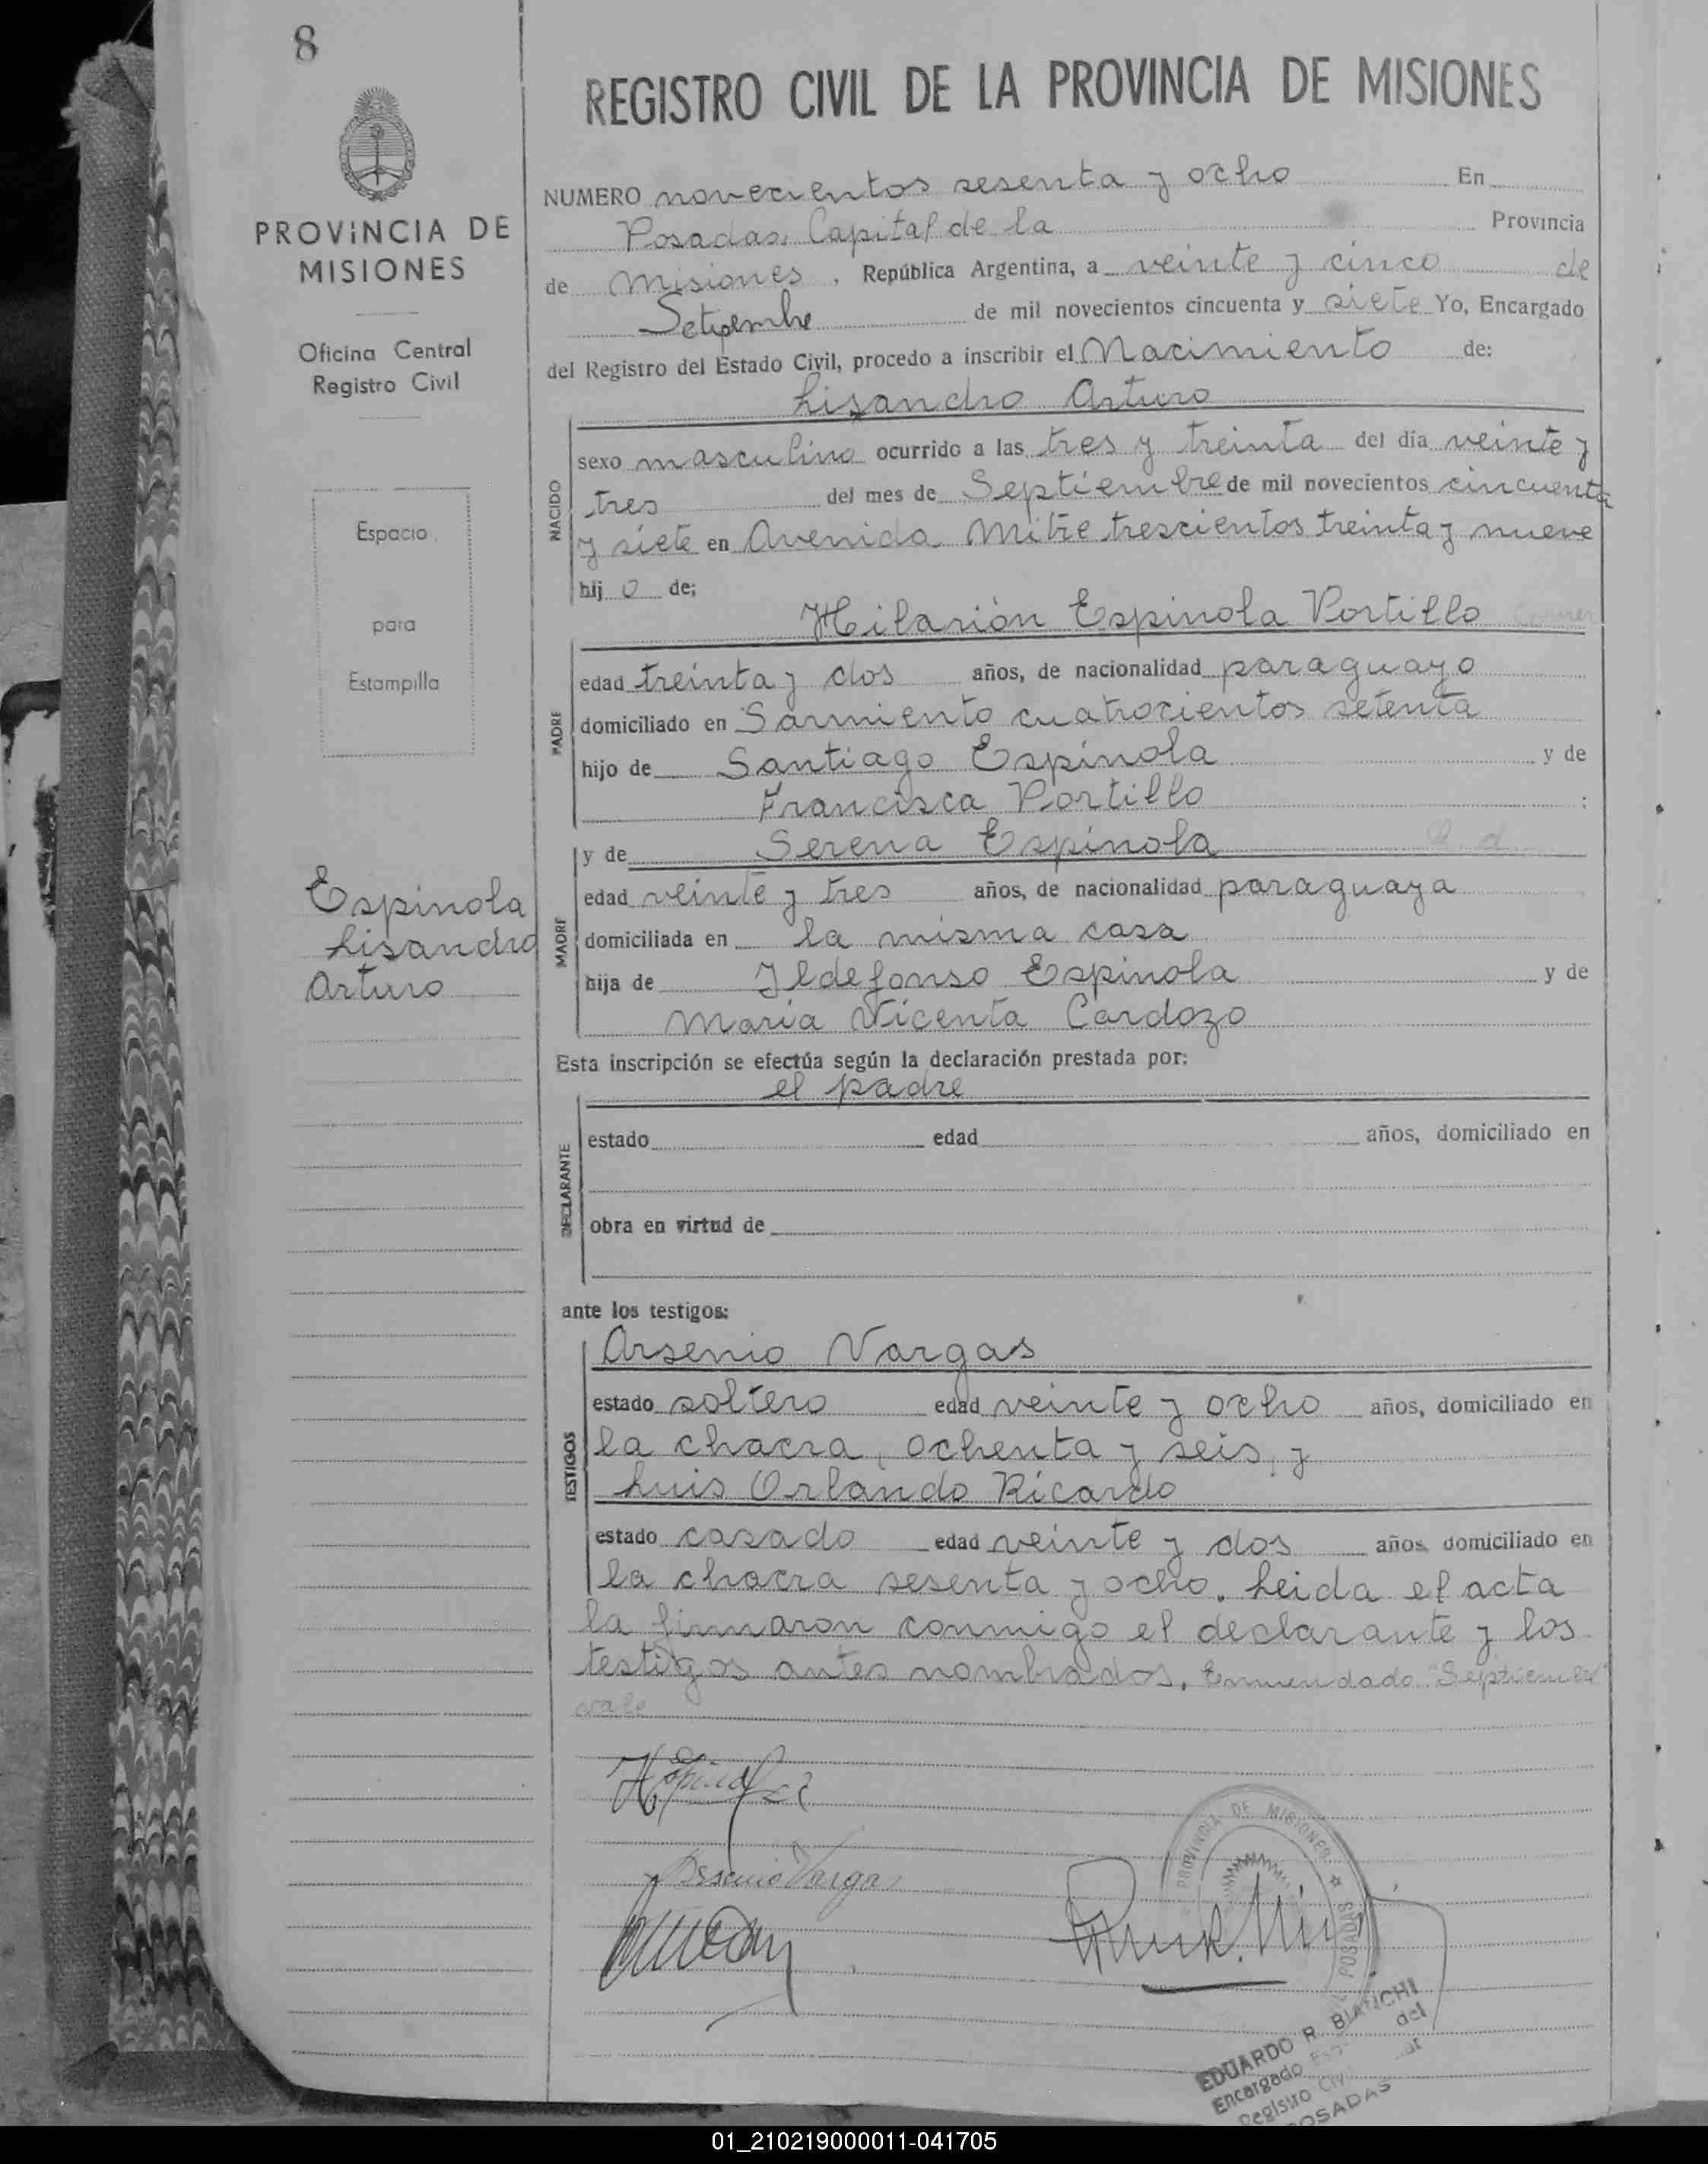 8
REGISTRO CIVIL DE LA PROVINCIA DE MISIONES
PROVINCIA DE
MISIONES
Oficina Central
Registro Civil
Espacio
para
Estampilla
Espinola
Lisandro
Arturo
NUMERO novecientos sesenta y ocho En
Posadas, Capital de la Provincia
de Misiones, República Argentina, a veinte y cinco de
Setiembre de mil novecientos cincuenta y siete Yo, Encargado
del Registro del Estado Civil, procedo a inscribir el Nacimiento de:
Lisandro Arturo
NACIDO
sexo masculino ocurrido a las tres y treinta del día veinte y
tres del mes de Septiembre de mil novecientos cincuenta
y siete en Avenida Mitre trescientos treinta y nueve
hij o de;
Hilarión Espinola Portillo
PADRE
edad treinta y dos años, de nacionalidad paraguayo
domiciliado en Sarmiento cuatrocientos setenta
hijo de Santiago Espinola y de
Francisca Portillo ;
MADRE
y de Serena Espinola
edad veinte y tres años, de nacionalidad paraguaya
domiciliada en la misma casa
hija de Ildefonso Espinola y de
Maria Vicenta Cardozo
Esta inscripción se efectúa según la declaración prestada por:
el padre
DECLARANTE
estado edad años, domiciliado en
obra en virtud de
ante los testigos:
TESTIGOS
Arsenio Vargas
estado soltero edad veinte y ocho años, domiciliado en
la chacra, ochenta y seis, y
Luis Orlando Ricardo
estado casado edad veinte y dos años domiciliado en
la chacra sesenta y ocho. Leida el acta
la firmaron conmigo el declarante y los
testigos antes nombrados. Enmendado "Septiembre"
vale
Arsenio Vargas
PROVINCIA DE MISIONES
POSADAS
EDUARDO R. BIANCHI
Encargado del
Registro Civil
POSADAS
01_210219000011-041705